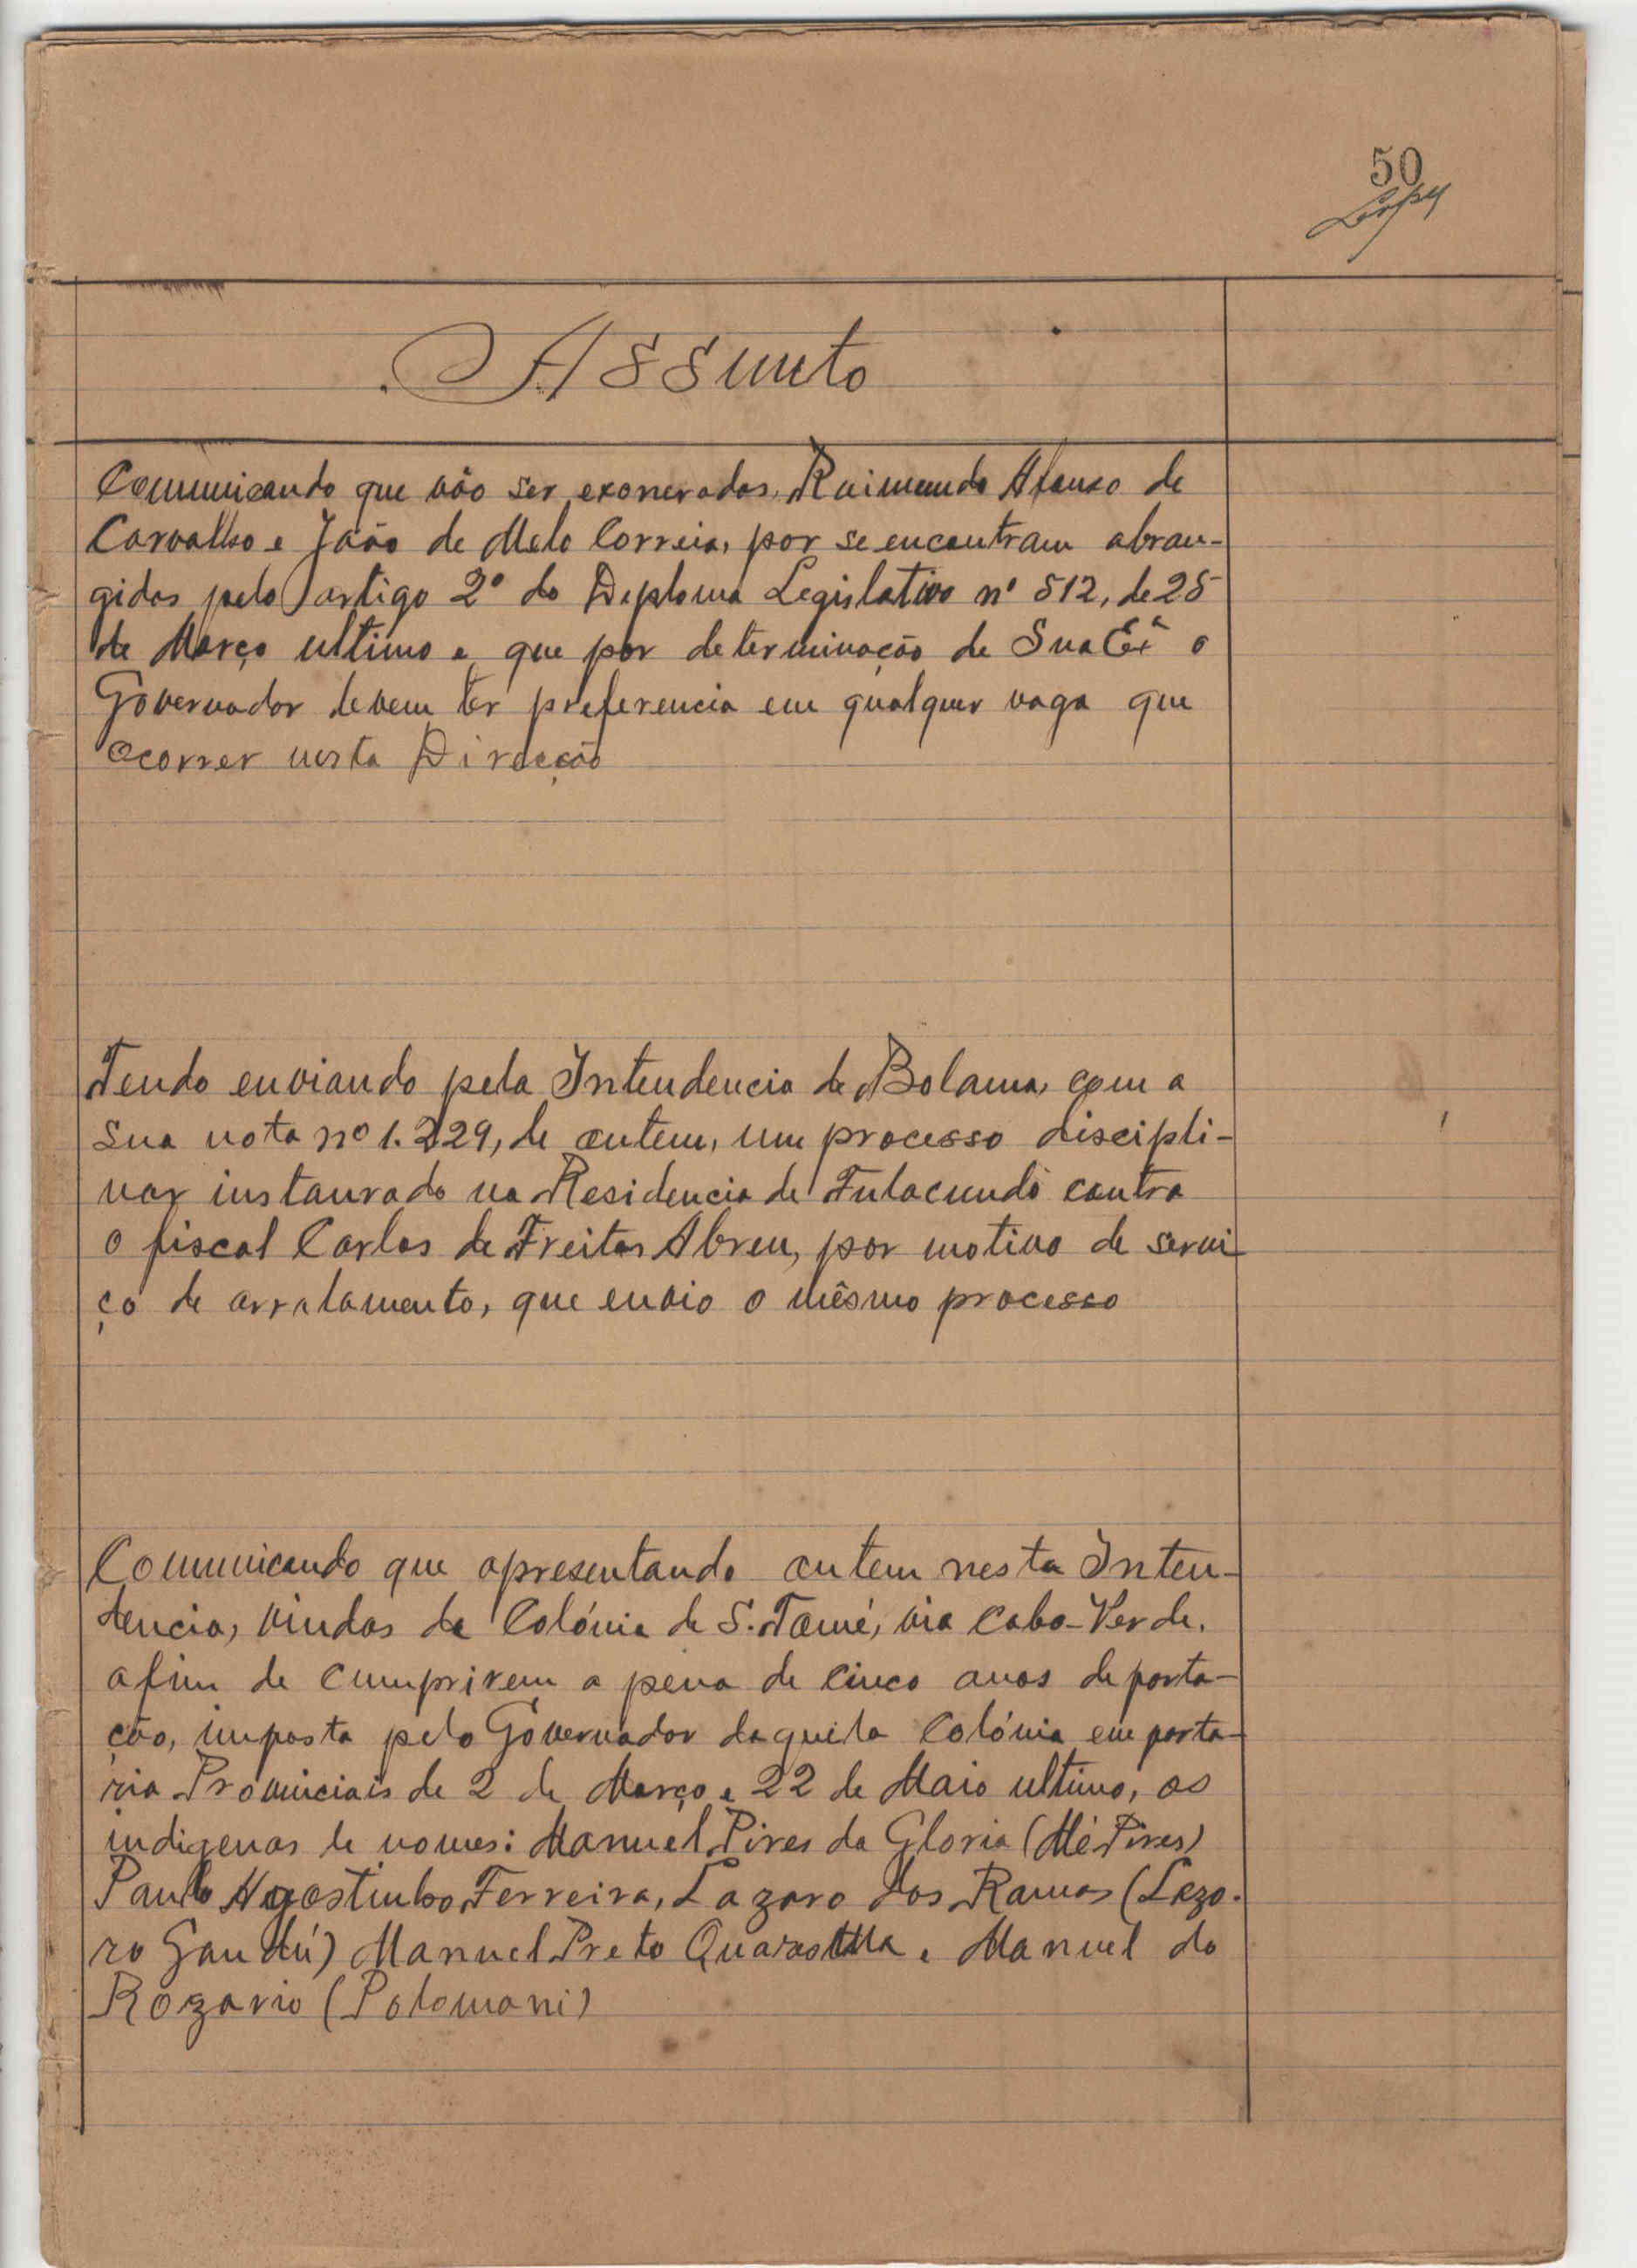 50
Assunto
Comunicando que vão ser exonerados, Raimundo Afonso de
Carvalho e João de Melo Correia, por se encontram abran-
gidos pelo artigo 2º do Diploma Legislativo nº 512, de 25
de Março ultimo e que por determinação de Sua Exª o
Governador devem ter preferencia em qualquer vaga que
ocorrer nesta Direcção
Tendo enviando pela Intendencia de Bolama, com a
sua nota nº 1.229, de ontem, um processo discipli-
nar instaurado na Residencia de Fulacunda contra
o fiscal Carlos de Freitas Abreu, por motivo de servi
ço de arrolamento, que envio o mêsmo processo
Comunicando que apresentando ontem nesta Inten-
dencia, vindos da Colónia de S. Tomé, via Cabo-Verde,
afim de cumprirem a pena de cinco anos deporta-
ção, imposta pelo Governador daquela Colónia em porta-
ria Provinciais de 2 de Março e 22 de Maio ultimo, os
indigenas de nomes: Manuel Pires da Gloria (Mé Pires)
Paulo Agostinho Ferreira, Lazaro dos Ramos (Lazo-
ro Gandú) Manuel Preto Quaresma e Manuel do
Rozario (Palomani)